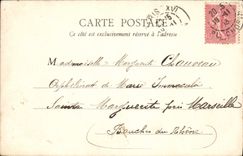 CARTE POSTALE
Ce côté est exclusivement réservé à l'adresse
PARIS XVI
Mademoiselle Marguerite Chauveau
Orphelinat de Marie Immaculée
Sainte Marguerite près Marseille
Bouches du Rhône